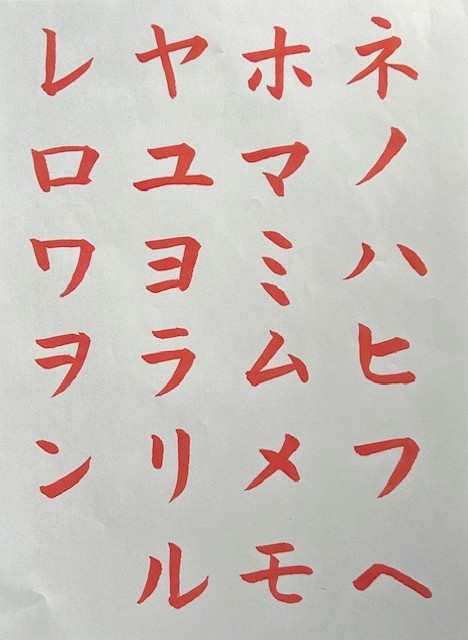 ネノハヒフヘ
ホマミムメモ
ヤユヨラリル
レロワヲン